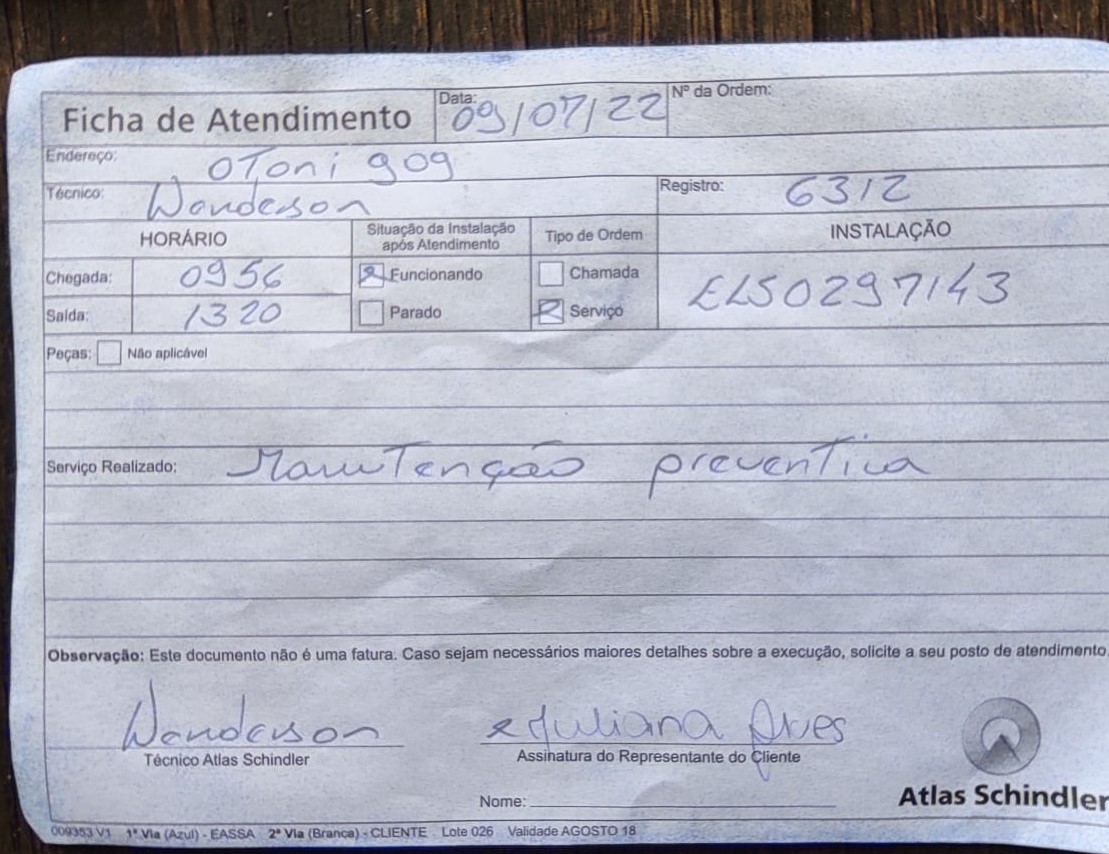 Ficha de Atendimento Data: 09/07/22 Nº da Ordem:
Endereço: OToni 909
Técnico: Wanderson Registro: 6312
HORÁRIO Situação da Instalação após Atendimento Tipo de Ordem INSTALAÇÃO
Chegada: 0956 Funcionando Chamada ELS0297143
Saída: 1320 Parado Serviço
Peças: Não aplicável
Serviço Realizado: Manutenção preventiva
Observação: Este documento não é uma fatura. Caso sejam necessários maiores detalhes sobre a execução, solicite a seu posto de atendimento.
Wanderson Juliana Alves
Técnico Atlas Schindler Assinatura do Representante do Cliente
Nome:
Atlas Schindler
009353 V1 1ª Via (Azul) - EASSA 2ª Via (Branca) - CLIENTE Lote 026 Validade AGOSTO 18